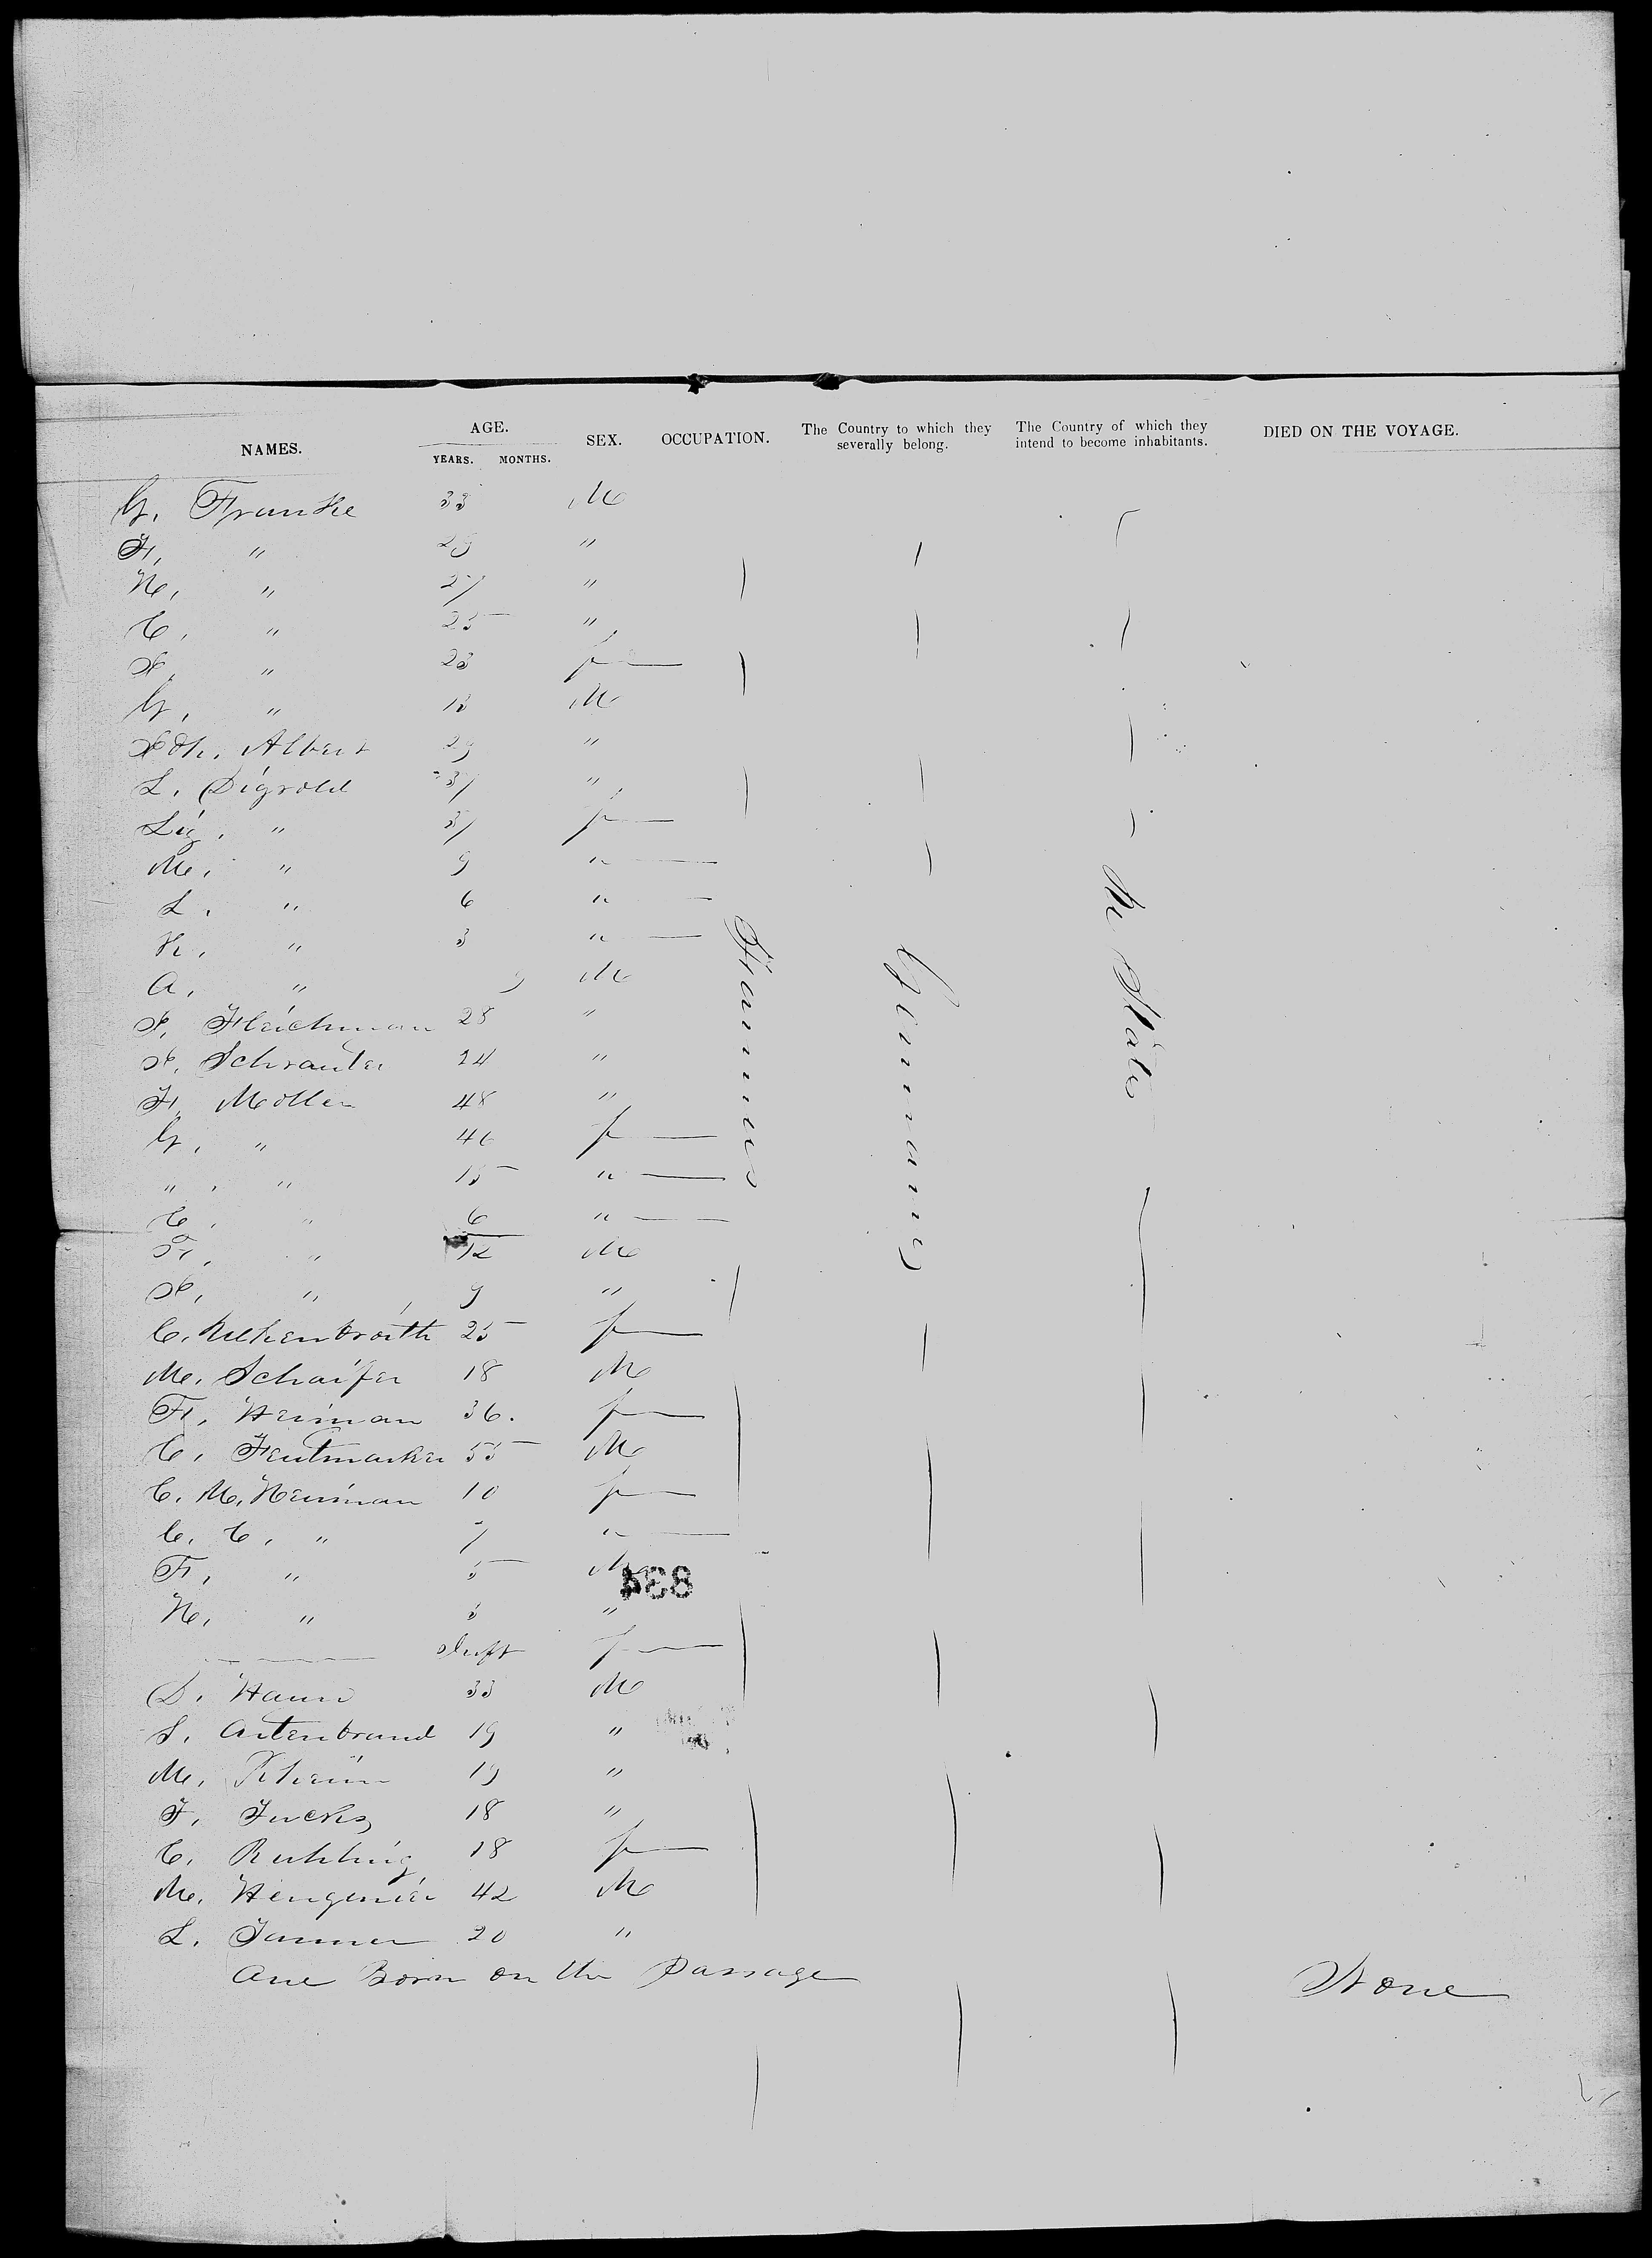 NAMES. AGE. YEARS. MONTHS. SEX. OCCUPATION. The Country to which they severally belong. The Country of which they intend to become inhabitants. DIED ON THE VOYAGE.
G. Franke 33 M
F. " 29 "
H. " 27 "
C. " 25 "
" 23 f
G. " M
Joh. Albert 29 "
L. Digrold 37 "
" 37 f
M. " 9 "
L. " 6 "
K. " 3 "
A. " 9 M
J. Fleichman 28 "
J. Schrauter 24 "
F. Moller 48 "
G. " 46 f
" " 15 "
C. " 6 "
F. " 12 M
J. " 9 "
C. 25 f
M. Schaifer 18 M
F. Heiman 36. f
C. Feutmarker 55 M
C. M. Heiman 10 f
C. C. " 7 "
F. " 5 M
H. " 3 "
Inft f
D. Haun 33 M
S. Autenbrand 19 "
M. 19 "
F. Fucks 18 "
C. Ruhling 18 f
M. 42 M
L. 20 "
One Born on the Passage None
Farmers
Germany
U States